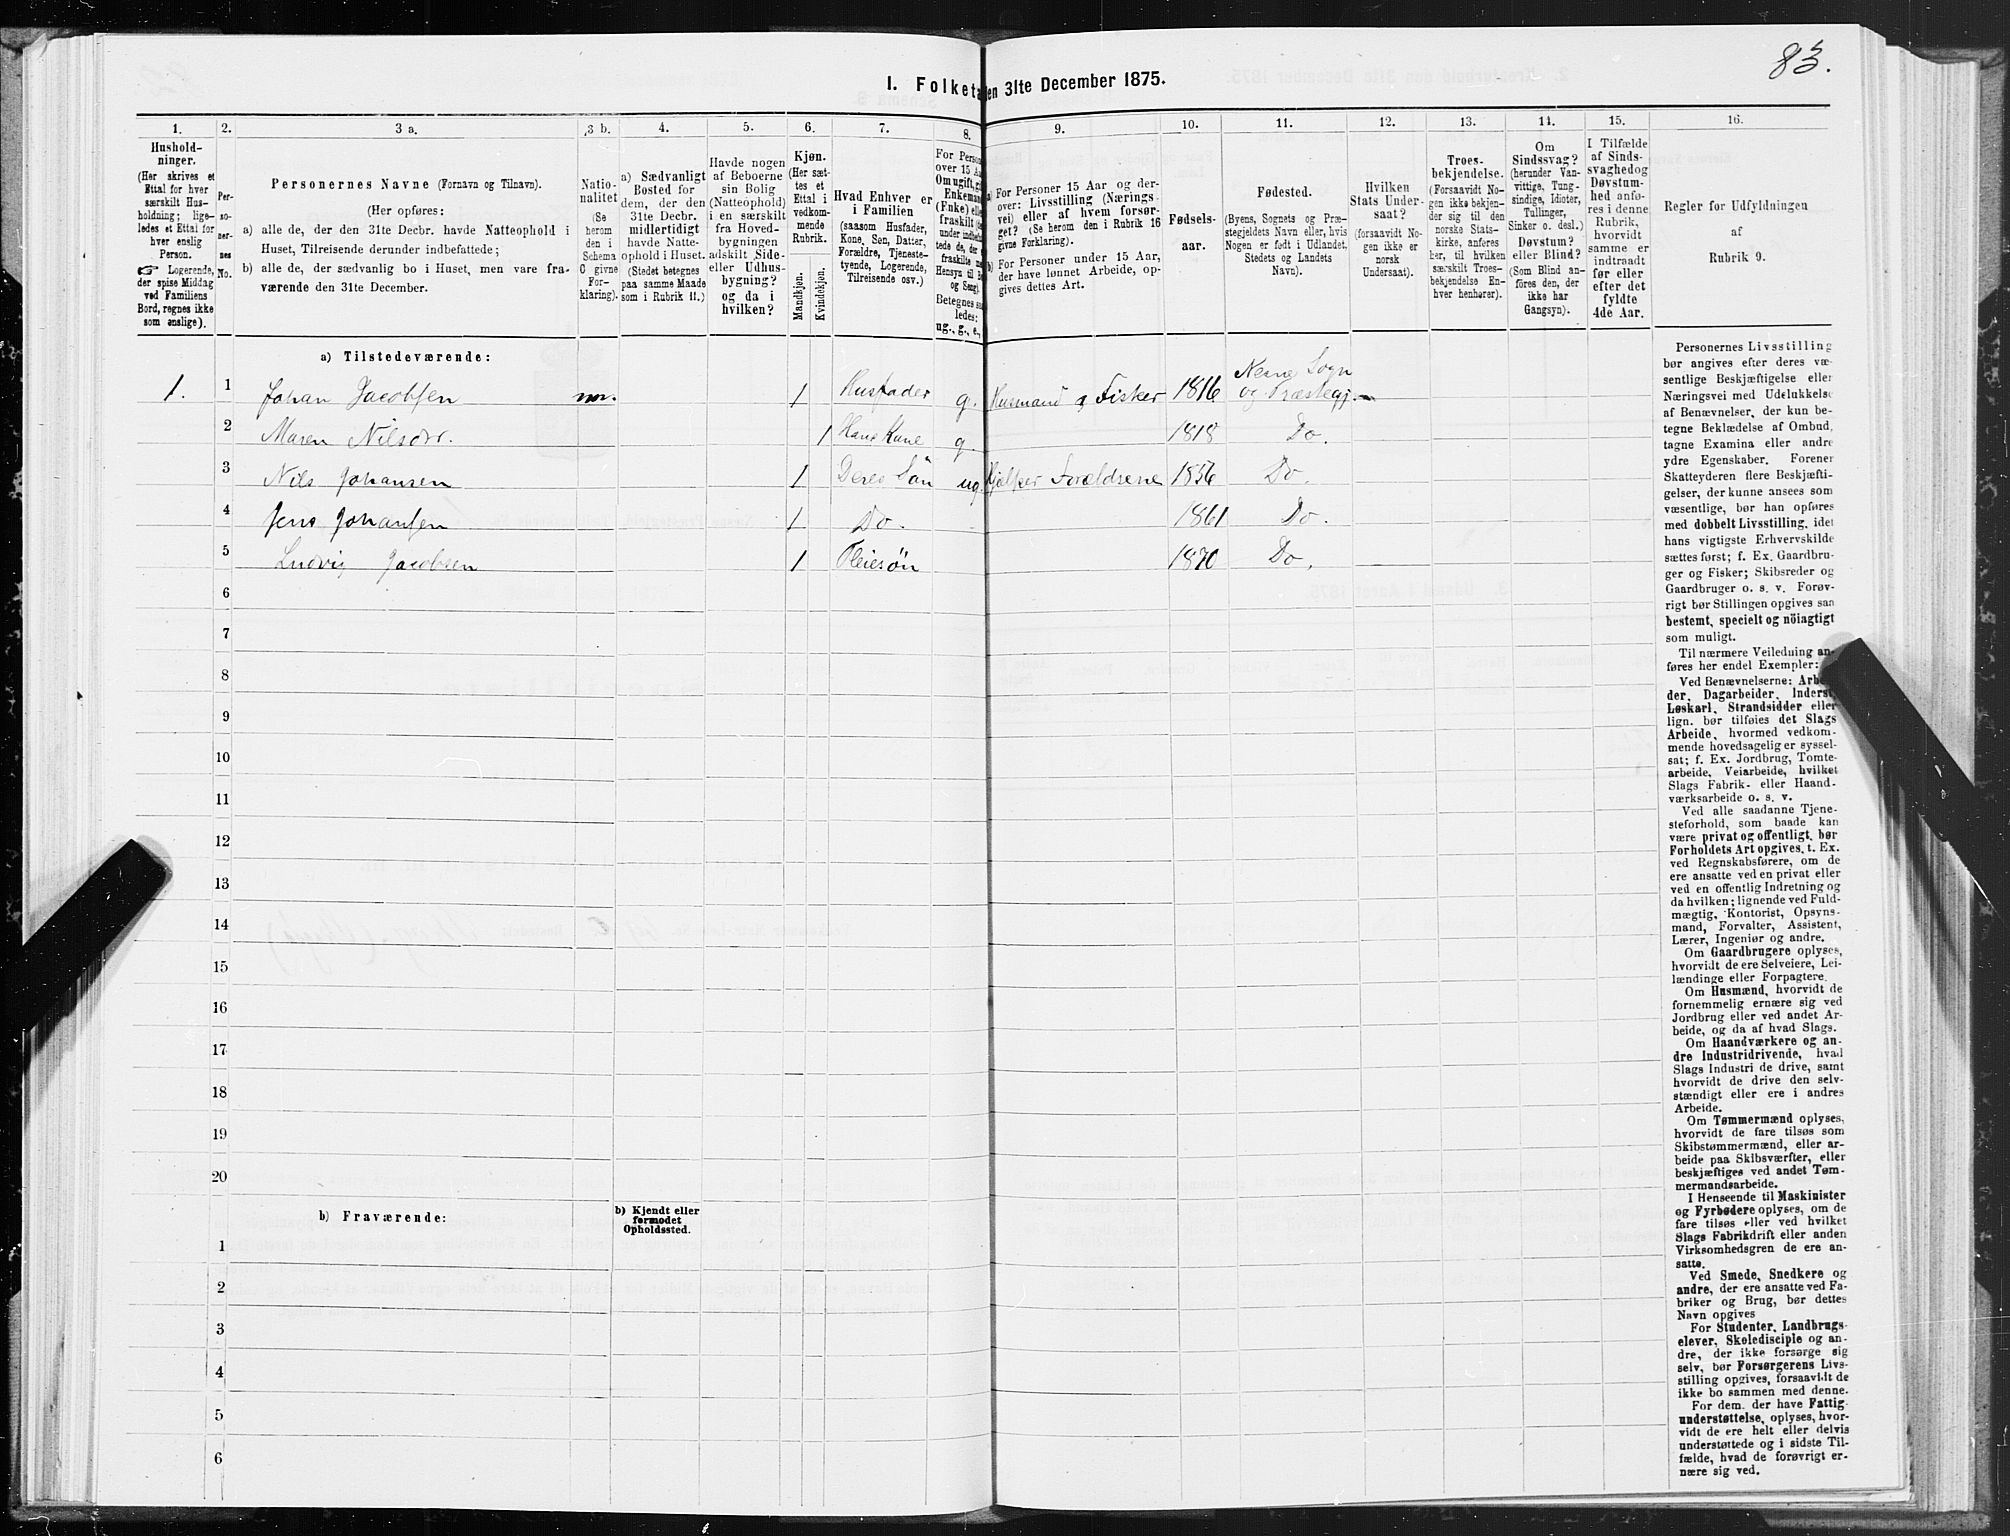 83.
I. Folketa en 31te December 1875.
1. 2. 3 a. 3 b. 4. 5. 6. 7. 8. 9. 10. 11. 12. 13. 14. 15. 16.
Hushold-
ninger.
(Her skrives et
Ettal for hver
særskilt Hus-
holdning; lige-
ledes et Ettal for
hver enslig
Person.
☞ Logerende,
der spise Middag
ved Familiens
Bord, regnes ikke
som enslige).
Per-
so-
ner-
nes
No.
Personernes Navne (Fornavn og Tilnavn).
(Her opføres:
a) alle de, der den 31te Decbr. havde Natteophold i
Huset, Tilreisende derunder indbefattede;
b) alle de, der sædvanlig bo i Huset, men vare fra-
værende den 31te December.
Natio-
nalitet
(Se
herom
den i
Schema
C givne
For-
klaring).
a) Sædvanligt
Bosted for
dem, der den
31te Decbr.
midlertidigt
havde Natte-
ophold i Huset.
(Stedet betegnes
paa samme Maade
som i Rubrik 11.)
Havde nogen
af Beboerne
sin Bolig
(Natteophold)
i en særskilt
fra Hoved-
bygningen
adskilt Side-
eller Udhus-
bygning?
og da i
hvilken?
Kjøn.
(Her sæt-
tes et
Ettal i
vedkom-
mende
Rubrik.
Mandkjøn.
Kvindekjøn.
Hvad Enhver er
i Familien
(saasom Husfader,
Kone, Søn, Datter,
Forældre, Tjeneste-
tyende, Logerende,
Tilreisende osv.)
For Perso
over 15 Aa
Om ugift, gi
Enkeman
(Enke) elle
fraskilt (se
under indbefa
tede de, der
fraskilte me
Hensyn til B
og Seng).
Betegnes sa
ledes:
ug., g., e.,
a) For Personer 15 Aar og der-
over: Livsstilling (Nærings-
vei) eller af hvem forsør-
get? (Se herom den i Rubrik 16
givne Forklaring).
b) For Personer under 15 Aar,
der have lønnet Arbeide, op-
gives dettes Art.
Fødsels-
aar.
Fødested.
(Byens, Sognets og Præ-
stegjeldets Navn eller, hvis
Nogen er født i Udlandet,
Stedets og Landets
Navn).
Hvilken
Stats Under-
saat?
(forsaavidt No-
gen ikke er
norsk
Undersaat).
Troes-
bekjendelse.
(Forsaavidt No-
gen ikke bekjen-
der sig til den
norske Stats-
kirke, anføres
her, til hvilken
særskilt Troes-
bekjendelse En-
hver henhører).
Om
Sindssvag?
(herunder Van-
vittige, Tung-
sindige, Idioter,
Tullinger,
Sinker o. desl.)
Døvstum?
eller Blind?
(Som Blind an-
føres den, der
ikke har
Gangsyn).
I Tilfælde
af Sinds-
svaghed og
Døvstum-
hed anfø-
res i denne
Rubrik,
hvorvidt
samme er
indtraadt
før eller
efter det
fyldte
4de Aar.
Regler for Udfyldningen
af
Rubrik 9.
a) Tilstedeværende:
1. 1 Johan Jacobsen nor. 1 Husfader g. Husmand og Fisker 1816 Nesne Sogn
og Præstegj.
2 Maren Nilsdtr. 1 Hans Kone g. 1818 Do.
3 Nils Johansen 1 Deres Søn ug. Hjelper Forældrene 1856 Do.
4 Jens Johansen 1 Do. 1861 Do.
5 Ludvig Jacobsen 1 Pleiesøn 1870 Do.
6
7
8
9
10
11
12
13
14
15
16
17
18
19
20
b) Fraværende:
b) Kjendt eller
formodet
Opholdssted.
1
2
3
4
5
6
Personernes Livsstilling
bør angives efter deres væ-
sentlige Beskjæftigelse eller
Næringsvei med Udelukkelse
af Benævnelser, der kun be-
tegne Beklædelse af Ombud,
tagne Examina eller andre
ydre Egenskaber. Forener
Skatteyderen flere Beskjæfti-
gelser, der kunne ansees som
væsentlige, bør han opføres
med dobbelt Livsstilling, idet
hans vigtigste Erhvervskilde
sættes først; f. Ex. Gaardbru-
ger og Fisker; Skibsreder og
Gaardbruger o. s. v. Forøv-
rigt bør Stillingen opgives saa
bestemt, specielt og nöiagtigt
som muligt.
Til nærmere Veiledning an-
føres her endel Exempler:
Ved Benævnelserne: Arbei-
der, Dagarbeider, Inderst,
Løskarl, Strandsidder eller
lign. bør tilføies det Slags
Arbeide, hvormed vedkom-
mende hovedsagelig er syssel-
sat; f. Ex. Jordbrug, Tomte-
arbeide, Veiarbeide, hvilket
Slags Fabrik- eller Haand-
værksarbeide o. s. v.
Ved alle saadanne Tjene-
steforhold, som baade kan
være privat og offentligt, bør
Forholdets Art opgives, t. Ex.
ved Regnskabsførere, om de
ere ansatte ved en privat eller
ved en offentlig Indretning og
da hvilken; lignende ved Fuld-
mægtig, Kontorist, Opsyns-
mand, Forvalter, Assistent,
Lærer, Ingeniør og andre.
Om Gaardbrugere oplyses,
hvorvidt de ere Selveiere, Lei-
lændinge eller Forpagtere.
Om Husmænd, hvorvidt de
fornemmelig ernære sig ved
Jordbrug eller ved andet Ar-
beide, og da af hvad Slags.
Om Haandværkere og an-
dre Industridrivende, hvad
Slags Industri de drive, samt
hvorvidt de drive den selv-
stændigt eller ere i andres
Arbeide.
Om Tømmermænd oplyses,
hvorvidt de fare tilsøs som
Skibstømmermænd, eller ar-
beide paa Skibsværfter, eller
beskjæftiges ved andet Tøm-
mermandsarbeide.
I Henseende til Maskinister
og Fyrbødere oplyses, om de
fare tilsøs eller ved hvilket
Slags Fabrikdrift eller anden
Virksomhedsgren de ere an-
satte.
Ved Smede, Snedkere og
andre, der ere ansatte ved Fa-
briker og Brug, bør dettes
Navn opgives
For Studenter, Landbrugs-
elever, Skoledisciple og an-
dre, der ikke forsørge sig
selv, bør Forsørgerens Livs-
stilling opgives, forsaavidt de
ikke bo sammen med denne.
For dem, der have Fattig-
understøttelse, oplyses, hvor-
vidt de ere helt eller delvis
understøttede og i sidste Til-
fælde, hvad de forøvrigt er-
nære sig ved.